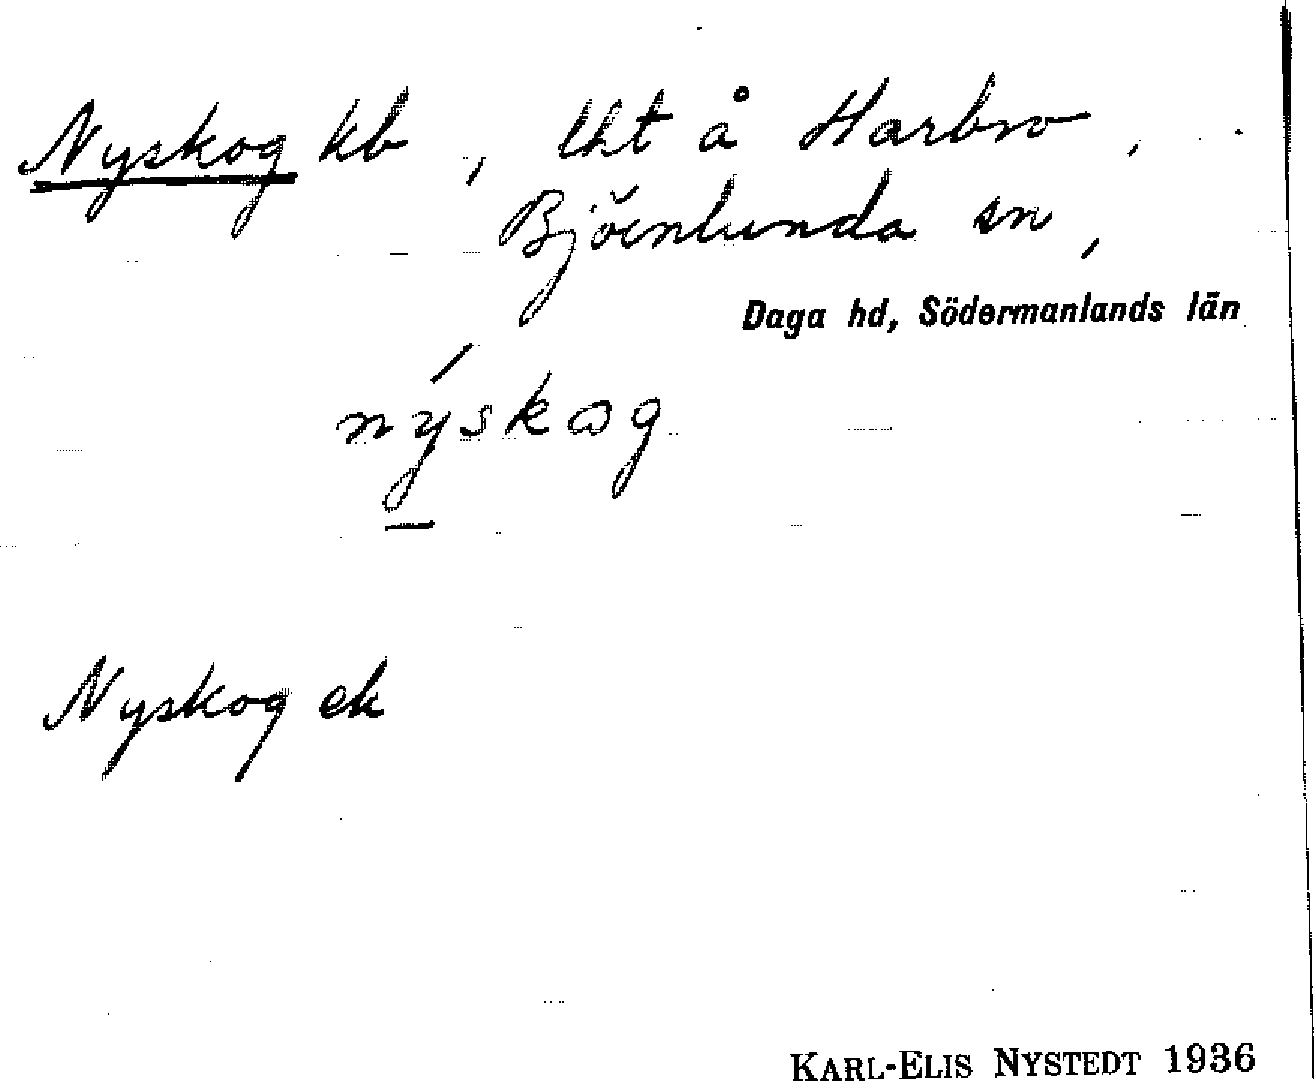 Nyskog kb, lht å Harbro,
Björnlunda sn,
Daga hd, Södermanlands län
nýskog
Nyskog ek
KARL-ELIS NYSTEDT 1936